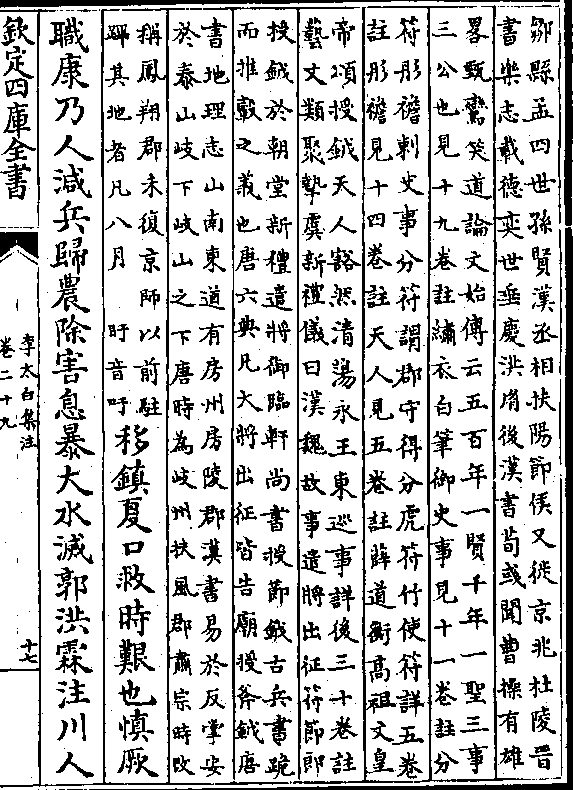 鄒縣孟四世孫賢漢丞相扶陽節侯又徙京兆杜陵晉
書樂志載德奕世垂慶洪胄後漢書荀彧聞曹操有雄
畧甄鸞笑道論文始傳云五百年一賢千年一聖三事
三公也見十九卷註繡衣白筆御史事見十一卷註分
符彤襜刺史事分符謂郡守得分虎符竹使符詳五卷
註彤襜見十四卷註天人見五卷註薛道衡高祖文皇
帝頌授鉞天人豁然清蕩永王東巡事詳後三十卷註
藝文類聚摯虞新禮儀曰漢魏故事遣將出征符節郎
授鉞於朝堂新禮遣將御臨軒尚書授節鉞古兵書跪
而推轂之義也唐六典凡大將出征皆告廟授斧鉞唐
書地理志山南東道有房州房陵郡漢書易於反掌安
於泰山岐下岐山之下唐時為岐州扶風郡肅宗時改
稱鳳翔郡未復京師以前駐
蹕其地者凡八月 盱音吁
移鎮夏口救時艱也慎厥
職康乃人減兵歸農除害息暴大水滅郭洪霖注川人
欽定四庫全書
李太白集注
卷二十九
十七